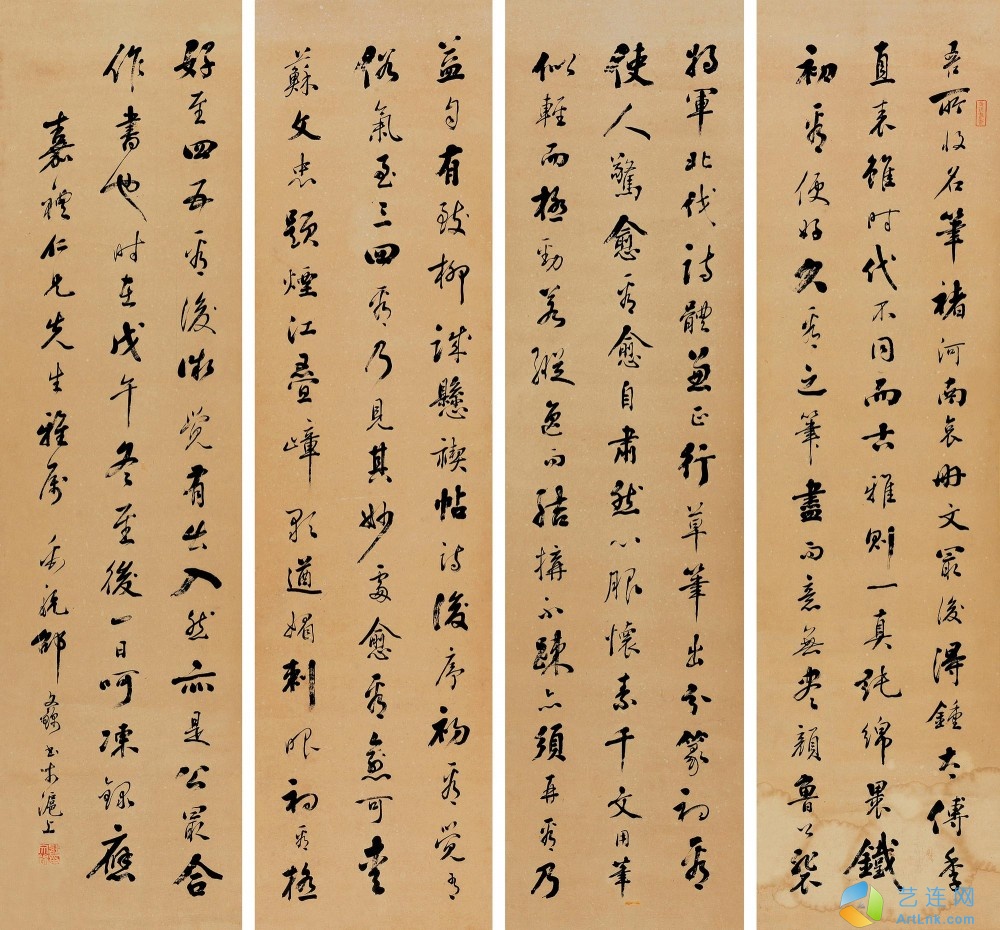 吾所收名筆褚河南哀册文最後得鍾太傅季
直表雖时代不同而古雅則一真純綿裹鐵
初看便好久看之筆盡而意無尽顔魯公裴
將軍北伐詩體兼正行草筆出分篆初看
使人驚愈看愈自肅然心服懷素千文用筆
似輕而極勁若縱逸而結搆不踈亦須再看乃
益匀有致柳誠懸禊帖詩後序初看覺有
俗氣至三四看乃見其妙處愈看愈可爱
蘇文忠題煙江疊嶂歌遒媚刺眼初看極
好至四五看後微覺有出入然亦是公最合
作書也时在戊午冬至後一日呵凍錄應
嘉禮仁兄先生雅属
書於滬上
艺连网
ArtLink.com